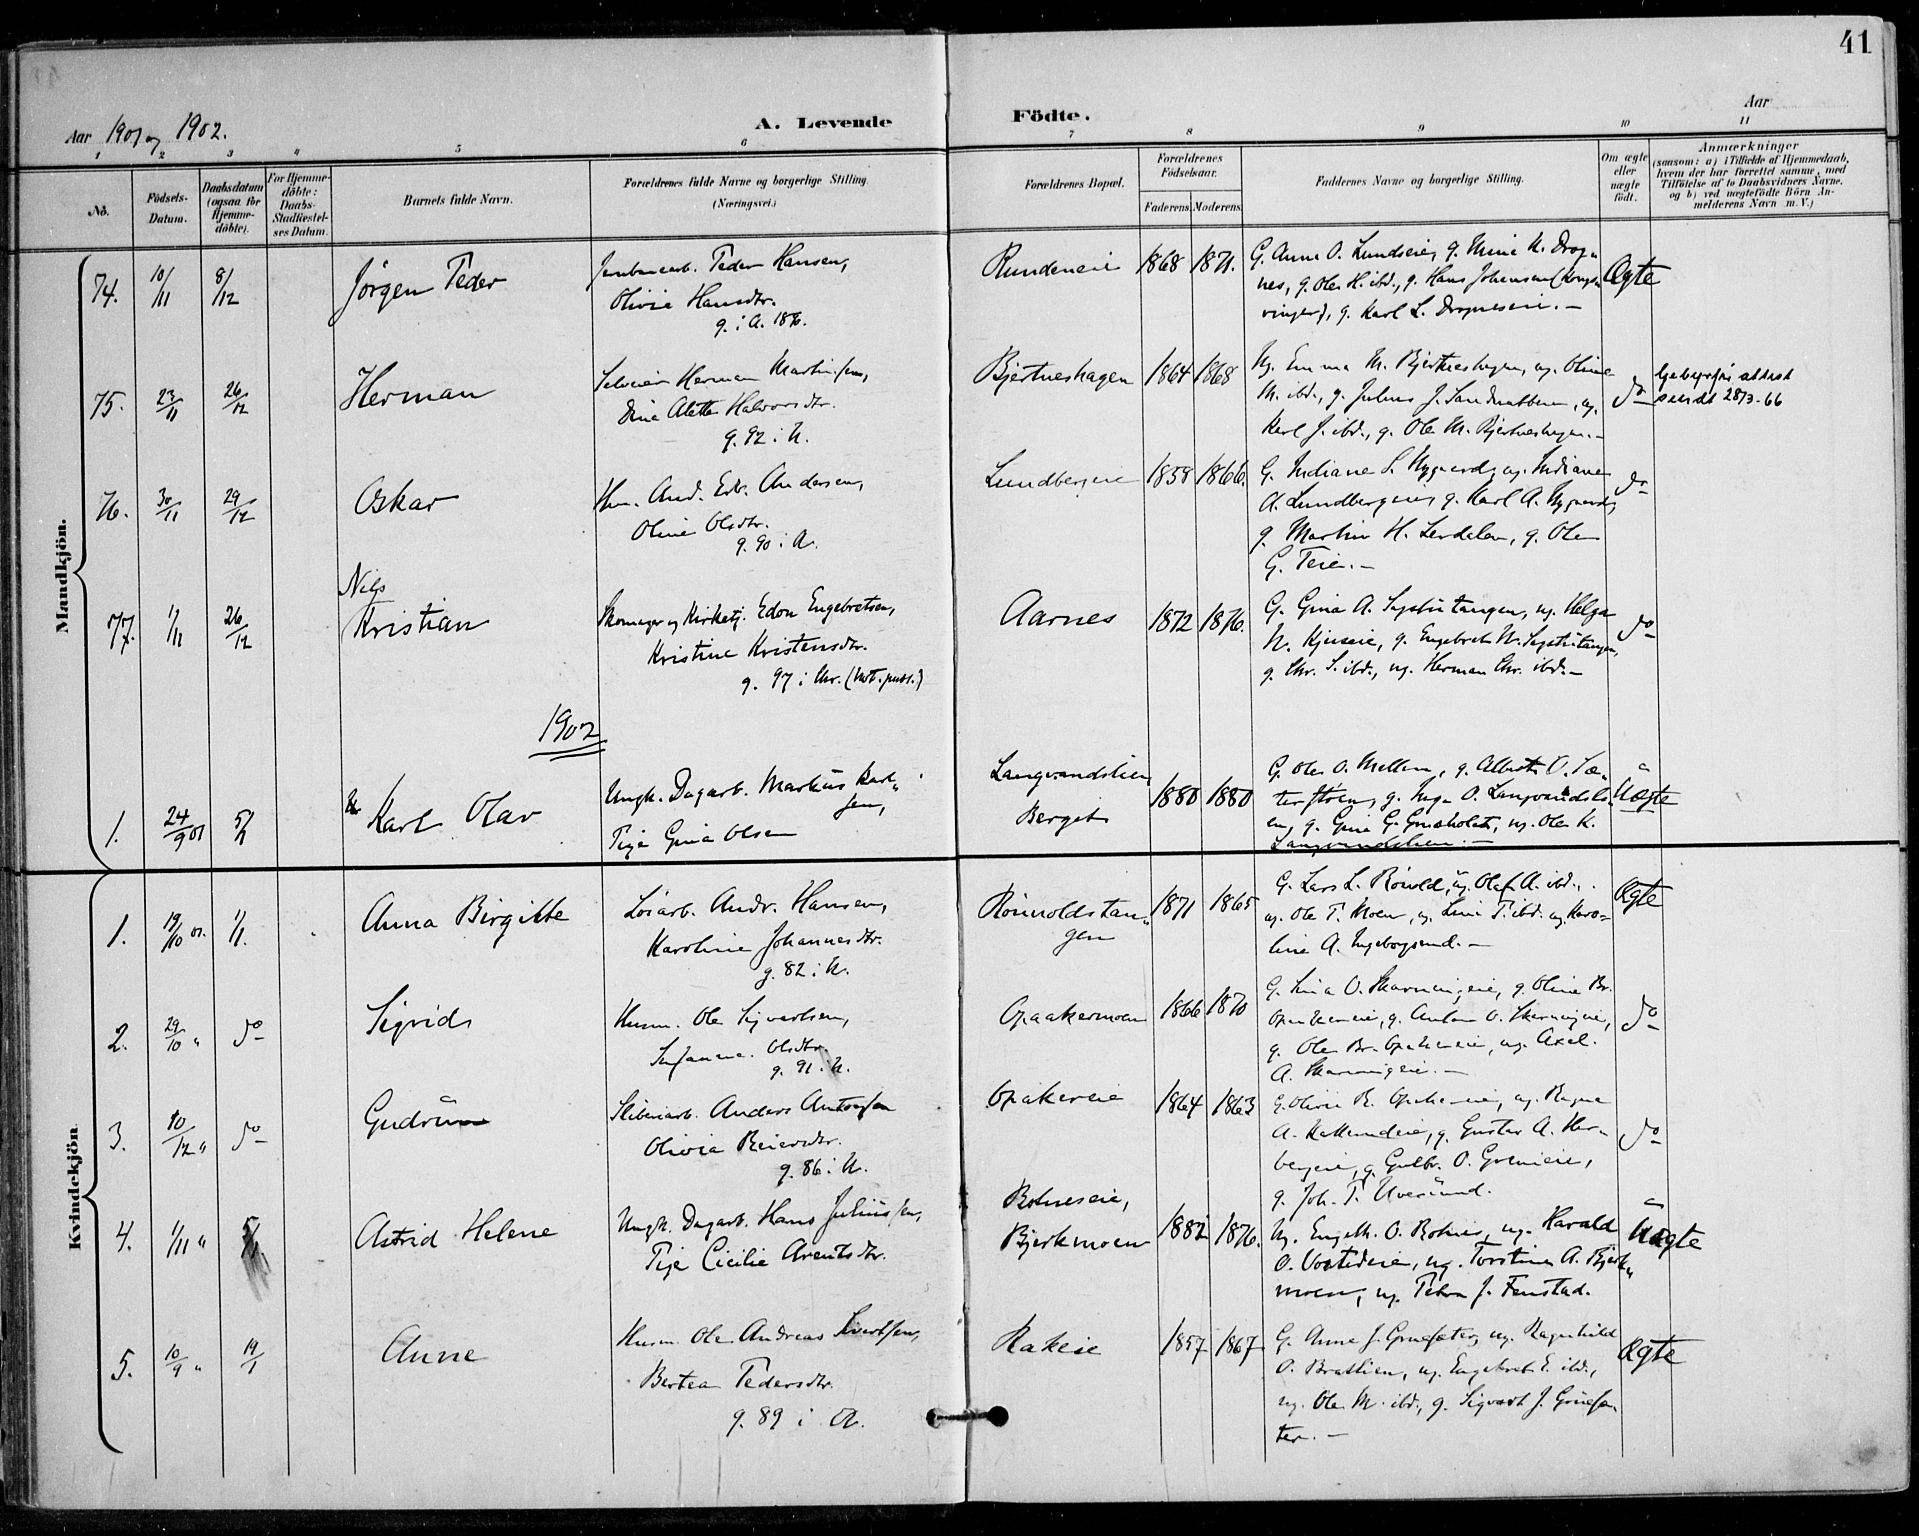 41
Aar 1901 og 1902.
A. Levende
Födte.
Aar
1 2 3 4 5 6 7 8 9 10 11
No.
Födsels-Datum.
Daabsdatum (ogsaa for Hjemmedöbte).
For Hjemmedöbte: Daabs-Stadfæstelses Datum.
Barnets fulde Navn.
Forældrenes fulde Navne og borgerlige Stilling.
(Næringsvei.)
Forældrenes Bopæl.
Forældrenes Födselsaar.
Faderens. Moderens.
Faddernes Navne og borgerlige Stilling.
Om ægte eller uægte födt.
Anmærkninger
(saasom: a) i Tilfælde af Hjemmedaab,
hvem der har forrettet samme, med
Tilföielse af to Daabsvidners Navne,
og b) ved uægtefödte Börn Anmelderens Navn m. V.)
Mandkjön.
74. 10/11 8/12 Jörgen Peder
Peder Hansen,
Olivia Hansdtr.
g. i A. 1896.
Rundeneie 1868 1871.
G. Anne O. Lundseie, g. Mina K. Drog-
nes, g. Ole H. ibd., g. Hans Johansen (Kongs-
vinger), g. Karl L. Drogneseie. –
Ægte
75. 23/11 26/12 Herman
Selveier Herman Martinsen,
Dina Alette Halvorsdtr.
g. 92 i N.
Bjertneshagen 1864 1868
Ug. Emma M. Bjertneshagen, ug. Oline
M. ibd., g. Julius J. Sandnabben, ug.
Karl J. ibd., g. Ole M. Bjertneshagen. –
do
attest
sendt 28/3-66
76. 30/11 29/12 Oskar
And. Edv. Andersen,
Oline Olsdtr.
g. 90 i A.
Lundbergeie 1859 1866.
G. Indiane S. Nygaard, ug. Indiane
A. Lundbergeie, g. Karl A. Nygaard,
g. Martin H. Lerdalen, g. Ole
G. Teie. –
do
77. 1/11 26/12 Nils
Kristian
Skomager og Kirketj. Edon Engebretsen,
Kristine Kristensdtr.
g. 97 i Chr.
Aarnes 1872 1876.
G. Gina A. Sagstutangen, ug. Helga
N. Kjuseie, g. Engebret N. Sagstutangen,
g. Chr. S. ibd., ug. Herman Chr. ibd. –
do
1902
1. 24/9 01 5/1 Karl Olav
Ungk. Dagarb. Markus Karl-
sen,
Pige Gina Olsen
Langvandslien
Berget
1880 1880
G. Ole O. Mellem, g. Albert O. Sæ-
terstöen, g. Inga O. Langvandsli-
en, g. Gina G. Grusholt, ug. Ole K.
Langvandslien. –
Uægte
Kvindekjön
1. 19/10 01. 1/1. Anna Birgitte
Löiarb. Andr. Hansen,
Karoline Johannesdtr.
g. 82 i N.
Roinoldstan-
gen
1871 1865
G. Lars L. Roinold, ug. Olaf A. ibd.,
ug. Ole T. Moen, ug. Lina T. ibd. ug. Karo-
line A. Ingeborgsrud. –
Ægte
2. 29/10 " do Sigrid
Husm. Ole Sigvartsen,
Olsdtr.
g. 91 i N.
Opaakermoen 1866 1870
G. Lina O. Skarningeie, g. Oline Br.
Opakereie, g. Anton O. Skarningeie,
g. Ole Br. Opakereie, ug. Axel
A. Skarningeie. –
do
3. 10/12 " do Gudrun
Sliberiarb. Anders Antonsen
Olivia Reiersdtr.
g. 86 i N.
Opakereie 1864 1863
G. Olivia R. Opakereie, ug. Ragna
A. Kallerudeie, g. Gustav A. Her-
bergeie, g. Gulbr. O. Gorenieie,
g. Joh. P. Uverud.
do
4. 1/11 " Astrid Helene
Ungk. Dagarb. Hans Juliussen,
Pige Cicilie Arentsdtr.
Botneseie,
Bjerkmoen
1882 1876.
Ug. Engeb. O. Botnes, ug. Harald
O. Vostedeie, ug. Torstine A. Bjerk-
moen, ug. Petra J. Fenstad.
Uægte
5. 10/9 " 19/1 Anne
Husm. Ole Andreas Sivertsen,
Bertea Pedersdtr.
g. 89 i A.
Rakeie 1857 1867
G. Anne J. Gruesæter, ug. Ragnhild
O. Brattlien, ug. Engebret E. ibd.,
ug. Ole M. ibd., g. Sigvart J. Gruesæ-
ter. –
Ægte